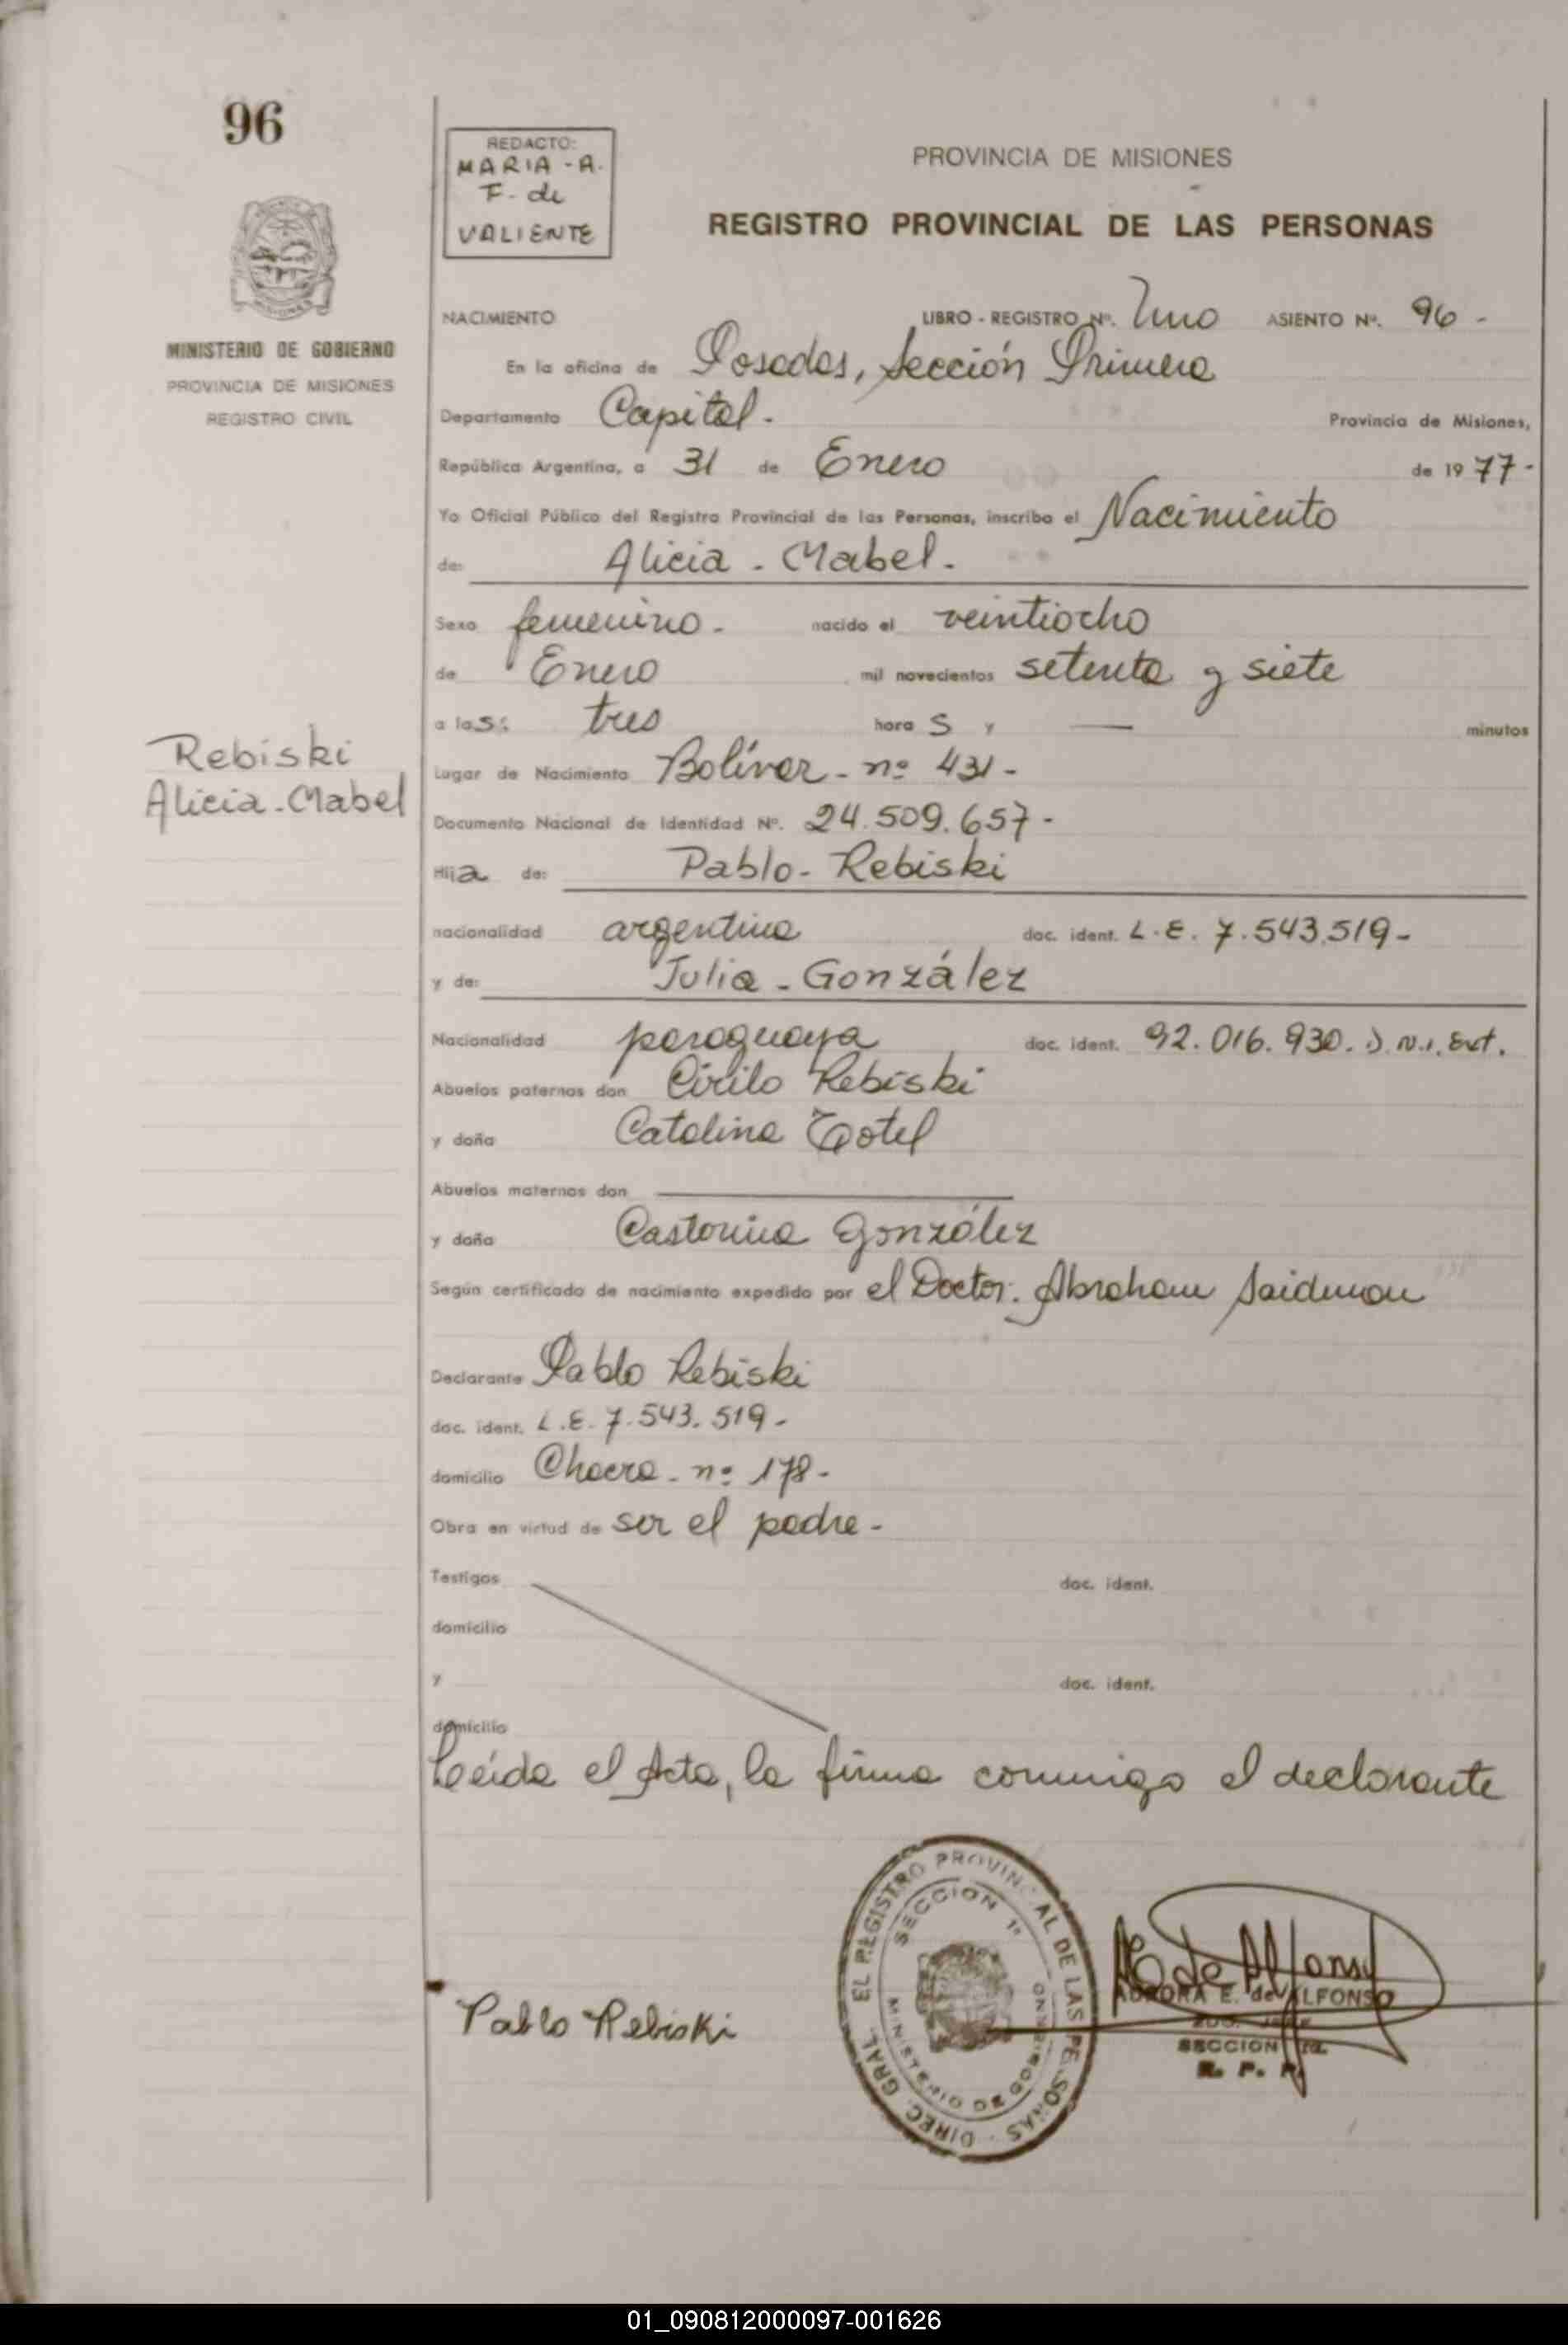 96
REDACTO:
MARIA - A.
F. de
VALIENTE
PROVINCIA DE MISIONES
REGISTRO PROVINCIAL DE LAS PERSONAS
MISIONES
MINISTERIO DE GOBIERNO
PROVINCIA DE MISIONES
REGISTRO CIVIL
NACIMIENTO LIBRO - REGISTRO Nº. Uno ASIENTO Nº. 96 -
En la oficina de Posadas, Sección Primera
Departamento Capital. Provincia de Misiones,
República Argentina, a 31 de Enero de 1977-
Yo Oficial Público del Registro Provincial de las Personas, inscribo el Nacimiento
de: Alicia - Mabel.
Sexo femenino. nacido el veintiocho
de Enero mil novecientos setenta y siete
a las: tres horas y — minutos
Rebiski
Alicia - Mabel
Lugar de Nacimiento Bolívar - nº 431 -
Documento Nacional de Identidad Nº. 24.509.657 -
Hija de: Pablo - Rebiski
nacionalidad argentina doc. ident. L.E. 7.543.519 -
y de: Julia - González
Nacionalidad paraguaya doc. ident. 92.016.930. D.N.I. Ext.
Abuelos paternos don Cirilo Rebiski
y doña Catalina Totel
Abuelos maternos don —
y doña Castorina González
Según certificado de nacimiento expedido por el Doctor: Abraham Saidman
Declarante Pablo Rebiski
doc. ident. L.E. 7.543.519 -
domicilio Chacra - nº 178 -
Obra en virtud de ser el padre -
Testigos doc. ident.
domicilio
y doc. ident.
domicilio
Leída el Acta, la firma conmigo el declarante
DIREC. GRAL. EL REGISTRO PROVINCIAL DE LAS PERSONAS
SECCION 1ª
MINISTERIO DE GOBIERNO
Pablo Rebiski
A E de Alfonso
AURORA E. de ALFONSO
2DO. JEFE
SECCION 1ra.
R. P. P.
01_090812000097-001626